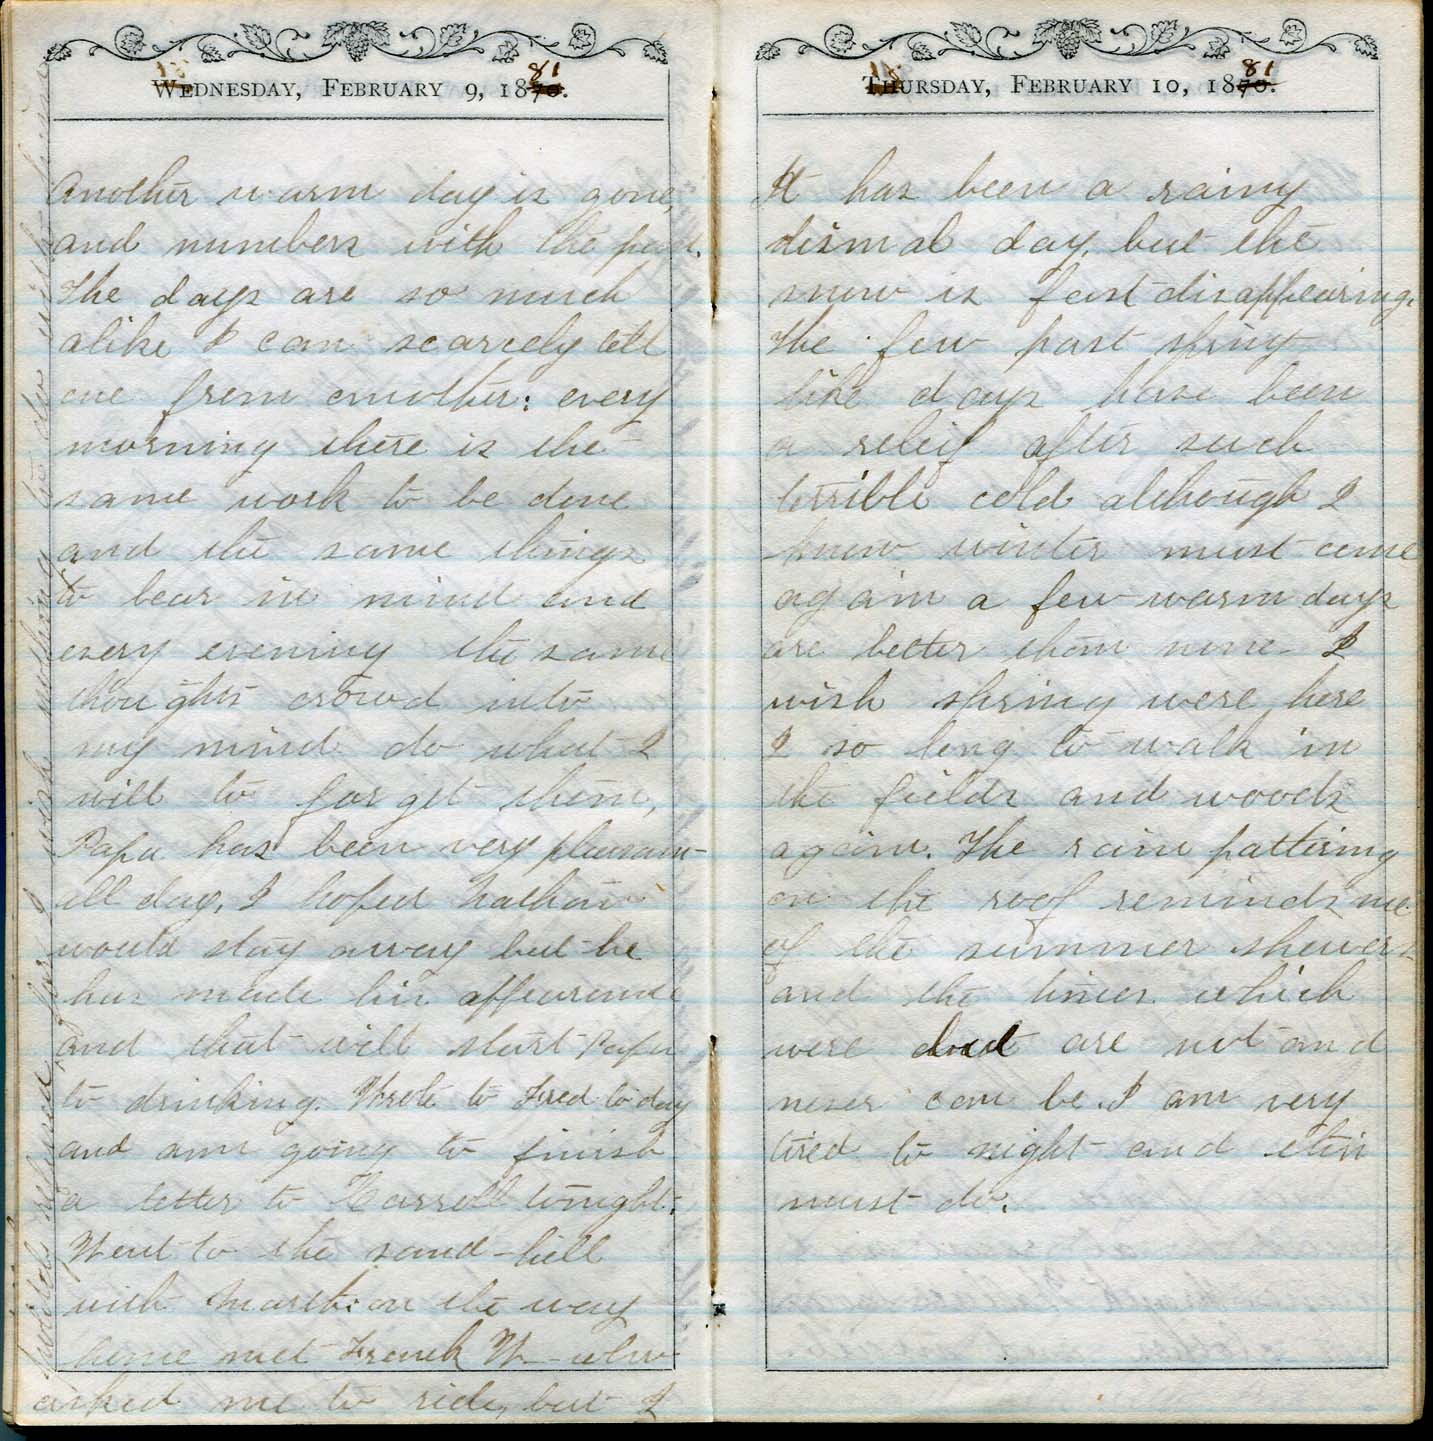 WEDNESDAY, FEBRUARY 9, 1881.
Another warm day is gone,
and numbers with the past.
The days are so much
alike I can scarcely tell
one from another: every
morning there is the
same work to be done
and the same things
to bear in mind and
every evening the same
thoughts crowd into
my mind do what I
will to forget them,
Papa has been very pleasant
all day, I hoped Nathan
would stay away but he
has made his appearance
and that will start Papa
to drinking. Wrote to Fred to day
and am going to finish
a letter to Carroll tonight.
Went to the sand-hill
with Marth: on the way
home met Frank W- who
asked me to ride, but I
politely refused, for I wish nothing to do with him
THURSDAY, FEBRUARY 10, 1881.
It has been a rainy
dismal day, but the
snow is fast disappearing.
The few past spring
like days have been
a releif after such
terrible cold although I
know winter must come
again a few warm days
are better than none. I
wish spring were here
I so long to walk in
the fields and woods
again. The rain pattering
on the roof reminds me
of the summer showers
and the times which
were but are not and
never can be. I am very
tired to night and this
must do.